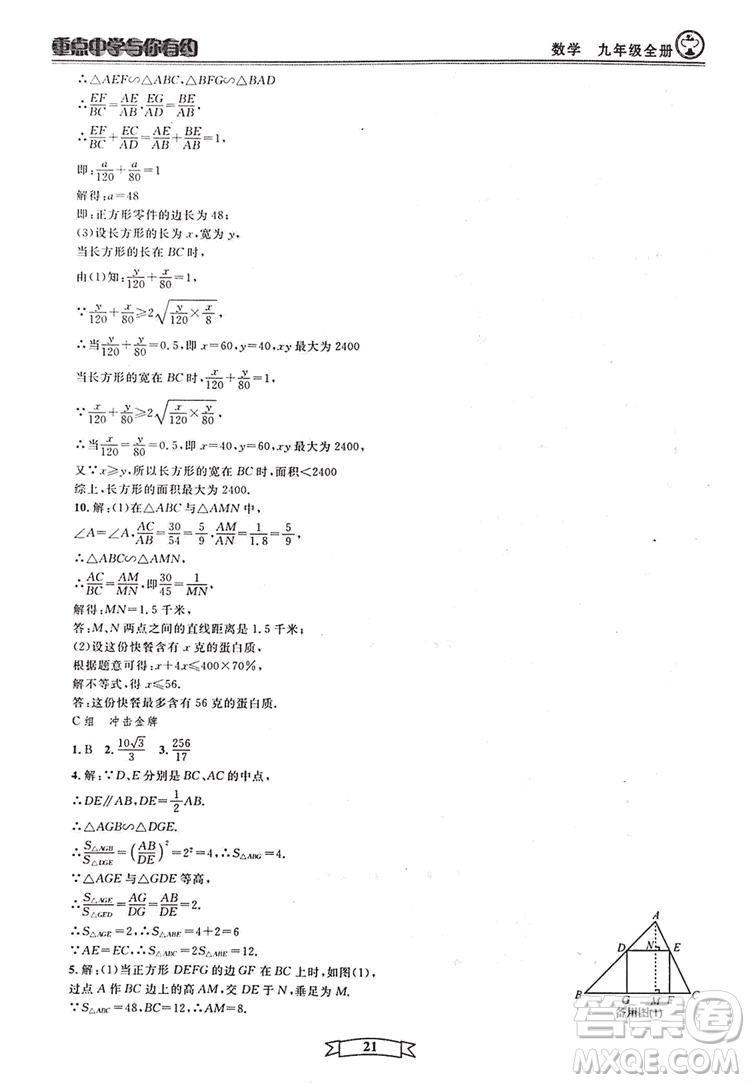 重点中学与你有约
数学 九年级全册
∴△AEF∽△ABC,△BFG∽△BAD
∴EF/BC=AE/AB,EG/AD=BE/AB.
∴EF/BC+EC/AD=AE/AB+BE/AB=1,
即:a/120+a/80=1
解得:a=48
即:正方形零件的边长为48;
(3)设长方形的长为x,宽为y,
当长方形的长在BC时,
由(1)知:y/120+x/80=1,
∵y/120+x/80≥2√(y/120×x/8),
∴当y/120=x/80=0.5,即x=60,y=40,xy最大为2400
当长方形的宽在BC时,x/120+y/80=1,
∵x/120+y/80≥2√(x/120×y/80),
∴当x/120=y/80=0.5,即x=60,y=40,xy最大为2400
又∵x≥y,所以长方形的宽在BC时,面积<2400
综上,长方形的面积最大为2400.
10.解:(1)在△ABC与△AMN中,
∠A=∠A,AC/AB=30/54=5/9,AM/AN=1/1.8=5/9,
∴△ABC∽△AMN,
∴AC/BC=AM/MN,即30/45=1/MN,
解得:MN=1.5千米,
答:M、N两点之间的直线距离是1.5千米;
(2)设这份快餐含有x克的蛋白质.
根据题意可得:x+4x≤400×70%,
解不等式,得x≤56.
答:这份快餐最多含有56克的蛋白质.
C组 冲击金牌
1.B 2.10√3/3 3.256/17
4.解:∵D、E分别是BC、AC的中点,
∴DE∥AB,DE/AB=1/2.
∴△AGB∽△DGE.
∴S△AGB/S△DGE=(AB/DE)²=2²=4,∴S△ABG=4;
∵△AGE与△GDE等高,
∴S△AGE/S△GED=AG/DG=AB/DE=2,
∴S△AGE=2,∴S△ABE=4+2=6
∵AE=EC,∴S△ABC=2S△ABE=12.
5.解:(1)当正方形DEFG的边GF在BC上时,如图(1),
过点A作BC边上的高AM,交DE于N,垂足为M.
∵S△ABC=48,BC=12,∴AM=8.
A
D N E
B G M F C
备用图(1)
答案圈
MXQE.COM
21